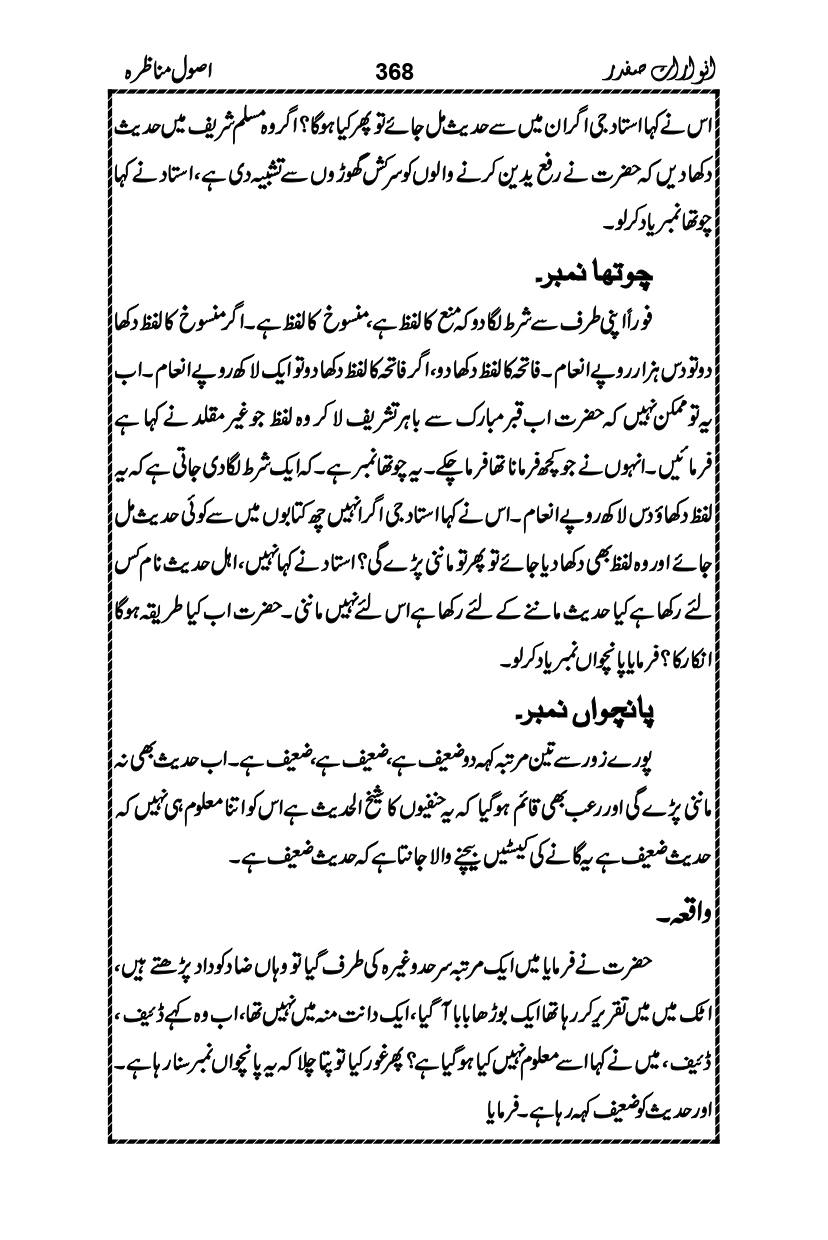 انوارات صفدر
368
اصول مناظرہ
اس نے کہا استاد جی اگر ان میں سے حدیث مل جائے تو پھر کیا ہوگا؟ اگر وہ مسلم شریف میں حدیث
دکھا دیں کہ حضرت نے رفع یدین کرنے والوں کو سرکش گھوڑوں سے تشبیہ دی ہے، استاد نے کہا
چوتھا نمبر یاد کرلو۔
چوتھا نمبر۔
فوراً اپنی طرف سے شرط لگا دو کہ منع کا لفظ ہے، منسوخ کا لفظ ہے۔ اگر منسوخ کا لفظ دکھا
دو تو دس ہزار روپے انعام۔ فاتحہ کا لفظ دکھا دو، اگر فاتحہ کا لفظ دکھا دو تو ایک لاکھ روپے انعام۔ اب
یہ تو ممکن نہیں کہ حضرت اب قبر مبارک سے باہر تشریف لا کر وہ لفظ جو غیر مقلد نے کہا ہے
فرمائیں۔ انہوں نے جو کچھ فرمانا تھا فرما چکے۔ یہ چوتھا نمبر ہے۔ کہ ایک شرط لگا دی جاتی ہے کہ یہ
لفظ دکھاؤ دس لاکھ روپے انعام۔ اس نے کہا استاد جی اگر انہیں چھ کتابوں میں سے کوئی حدیث مل
جائے اور وہ لفظ بھی دکھا دیا جائے تو پھر تو ماننی پڑے گی؟ استاد نے کہا نہیں، اہل حدیث نام کس
لئے رکھا ہے کیا حدیث ماننے کے لئے رکھا ہے اس لئے نہیں ماننی۔ حضرت اب کیا طریقہ ہوگا
انکار کا؟ فرمایا پانچواں نمبر یاد کرلو۔
پانچواں نمبر۔
پورے زور سے تین مرتبہ کہہ دو ضعیف ہے، ضعیف ہے، ضعیف ہے۔ اب حدیث بھی نہ
ماننی پڑے گی اور رعب بھی قائم ہوگیا کہ یہ حنفیوں کا شیخ الحدیث ہے اس کو اتنا معلوم ہی نہیں کہ
حدیث ضعیف ہے یہ گانے کی کیسٹیں بیچنے والا جانتا ہے کہ حدیث ضعیف ہے۔
واقعہ۔
حضرت نے فرمایا میں ایک مرتبہ سرحد وغیرہ کی طرف گیا تو وہاں ضاد کو داد پڑھتے ہیں،
اٹک میں میں تقریر کر رہا تھا ایک بوڑھا بابا آ گیا، ایک دانت منہ میں نہیں تھا، اب وہ کہے ڈئیف،
ڈئیف، میں نے کہا اسے معلوم نہیں کیا ہو گیا ہے؟ پھر غور کیا تو پتا چلا کہ یہ پانچواں نمبر سنا رہا ہے۔
اور حدیث کو ضعیف کہہ رہا ہے۔ فرمایا